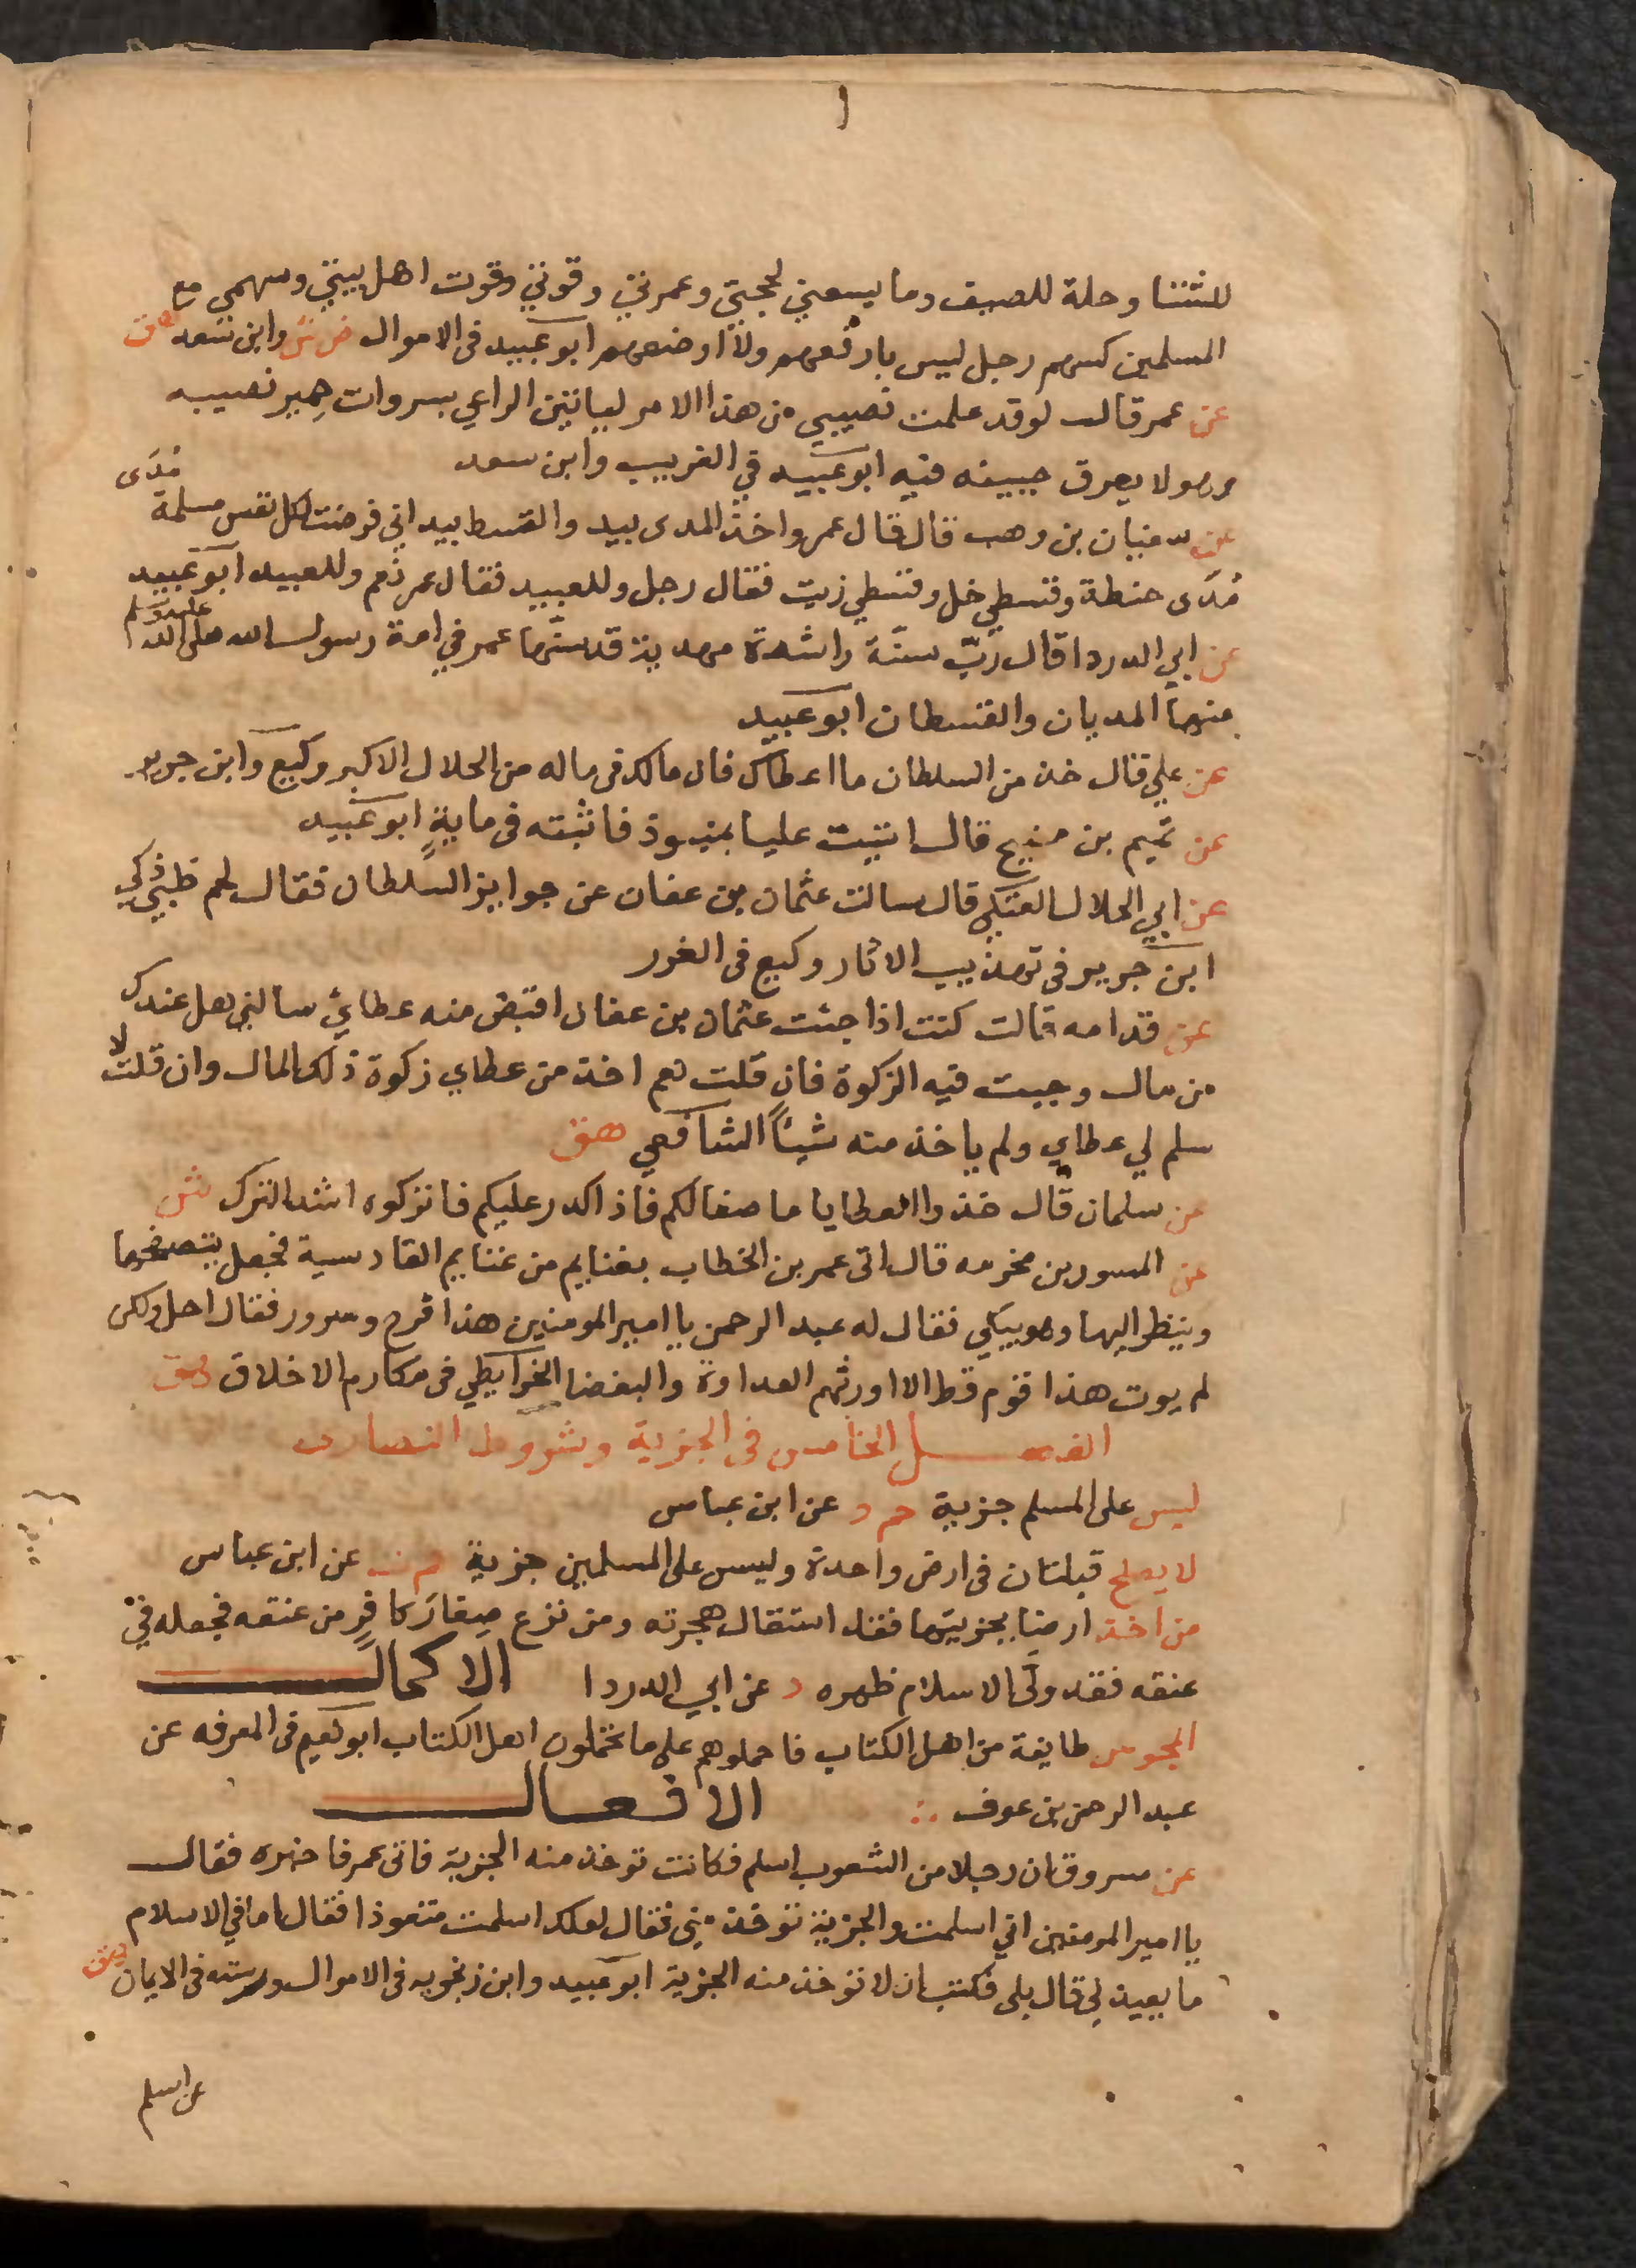 للشتا وحلة للصيف وما يسعني لحجتي وعمرتي وقوتي وقوت اهل بيتي وسهمي مع
المسلمين كسهم رجل ليس بارفعهم ولا اوضعهم ابو عبيد في الاموال ض ش وابن سعد هق
عن عمر قال لو قد علمت نصيبي من هذا الامر لياتين الراعي بسروات حمير نصيبه
وهو لا يعرق جبينه فيه ابو عبيد في الغريب وابن سعد
عن سفيان بن وهب قال قال عمر واخذ المدى بيد والقسط بيد اني فرضت لكل نفس مسلمة مُدَى
مُدَى حنطة وقسطي خل وقسطي زيت فقال رجل وللعبيد فقال عمر نعم وللعبيد ابو عبيد
عن ابي الدردا قال رُبّ سنّة راشدة مهدية قد سنّها عمر في امة رسول الله صلى الله عليه وسلم
منها المديان والقسطان ابو عبيد
عن علي قال خذ من السلطان ما اعطاك فان مالك في ماله من الحلال الاكبر وكيع وابن جرير
عن تميم بن مسيح قال اتيت عليا بمنبوذ فاثبته في ماية ابو عبيد
عن ابي الحلال العتكي قال سالت عثمان بن عفان عن جوايز السلطان فقال لحم ظبي ذكي
ابن جرير في تهذيب الاثار وكيع في الغرر
عن قدامه قالت كنت اذا جئت عثمان بن عفان اقبض منه عطائي سالني هل عندك
من مال وجبت فيه الزكوة فان قلت نعم اخذ من عطاي زكوة ذلك المال وان قلت لا
سلم لي عطاي ولم ياخذ منه شيئاً الشافعي هق
عن سلمان قال خذوا العطايا ما صفا لكم فاذا كدر عليكم فاتركوه اشد الترك ش
عن المسور بن مخرمه قال اتى عمر بن الخطاب بغنايم من غنايم القادسية فجعل يتصفحها
وينظر اليها وهو يبكي فقال له عبد الرحمن يا امير المومنين هذا فرح وسرور فقال اجل ولكن
لم يوت هذا قوم قط الا اورثهم العداوة والبغضا الخرايطي في مكارم الاخلاق هق
الفصل الخامس في الجزية وشروط النصارى
ليس على المسلم جزية حم د عن ابن عباس
لا يصلح قبلتان في ارض واحدة وليس على المسلمين جزية حم ت عن ابن عباس
من اخذ ارضا بجزيتها فقد استقال هجرته ومن نزع صغار كافر من عنقه فجعله في
عنقه فقد ولّى الاسلام ظهره د عن ابي الدردا الاكمال
المجوس طايفة من اهل الكتاب فاحملوهم على ما تحملون اهل الكتاب ابو نعيم في المعرفه عن
عبد الرحمن بن عوف الافعال
عن مسروق ان رجلا من الشعوب اسلم فكانت توخذ منه الجزية فاتى عمر فاخبره فقال
يا امير المومنين اني اسلمت والجزية توخذ مني فقال لعلك اسلمت متعوذا فقال اما في الاسلام
ما يعيذني قال بلى فكتب ان لا توخذ منه الجزية ابو عبيد وابن زنجويه في الاموال ورسته في الايمان هق
عن اسلم